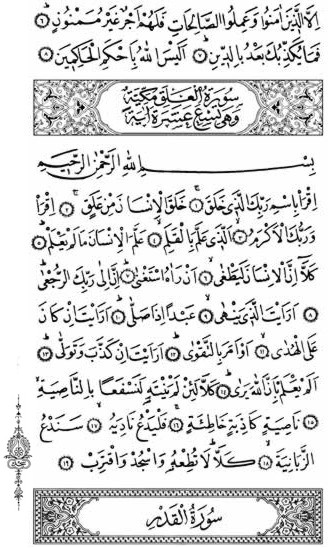 اِلَّا الَّذٖينَ اٰمَنُوا وَعَمِلُوا الصَّالِحَاتِ فَلَهُمْ اَجْرٌ غَيْرُ مَمْنُونٍ ﴿٦﴾
فَمَا يُكَذِّبُكَ بَعْدُ بِالدّٖينِ ﴿٧﴾ اَلَيْسَ اللّٰهُ بِاَحْكَمِ الْحَاكِمٖينَ ﴿٨﴾
سُورَةُ الْعَلَقِ مَكِّيَّةٌ
وَهِيَ تِسْعَ عَشْرَةَ اٰيَةً
بِسْمِ اللّٰهِ الرَّحْمٰنِ الرَّحٖيمِ
اِقْرَأْ بِاسْمِ رَبِّكَ الَّذٖي خَلَقَ ﴿١﴾ خَلَقَ الْاِنْسَانَ مِنْ عَلَقٍ ﴿٢﴾ اِقْرَأْ
وَرَبُّكَ الْاَكْرَمُ ﴿٣﴾ اَلَّذٖي عَلَّمَ بِالْقَلَمِ ﴿٤﴾ عَلَّمَ الْاِنْسَانَ مَا لَمْ يَعْلَمْ ﴿٥﴾
كَلَّا اِنَّ الْاِنْسَانَ لَيَطْغٰى ﴿٦﴾ اَنْ رَاٰهُ اسْتَغْنٰى ﴿٧﴾ اِنَّ اِلٰى رَبِّكَ الرُّجْعٰى
﴿٨﴾ اَرَاَيْتَ الَّذٖي يَنْهٰى ﴿٩﴾ عَبْدًا اِذَا صَلّٰى ﴿١٠﴾ اَرَاَيْتَ اِنْ كَانَ
عَلَى الْهُدٰى ﴿١١﴾ اَوْ اَمَرَ بِالتَّقْوٰى ﴿١٢﴾ اَرَاَيْتَ اِنْ كَذَّبَ وَتَوَلّٰى ﴿١٣﴾
اَلَمْ يَعْلَمْ بِاَنَّ اللّٰهَ يَرٰى ﴿١٤﴾ كَلَّا لَئِنْ لَمْ يَنْتَهِ لَنَسْفَعًا بِالنَّاصِيَةِ
﴿١٥﴾ نَاصِيَةٍ كَاذِبَةٍ خَاطِئَةٍ ﴿١٦﴾ فَلْيَدْعُ نَادِيَهُ ﴿١٧﴾ سَنَدْعُ
الزَّبَانِيَةَ ﴿١٨﴾ كَلَّا لَا تُطِعْهُ وَاسْجُدْ وَاقْتَرِبْ ﴿١٩﴾
سُورَةُ الْقَدْرِ